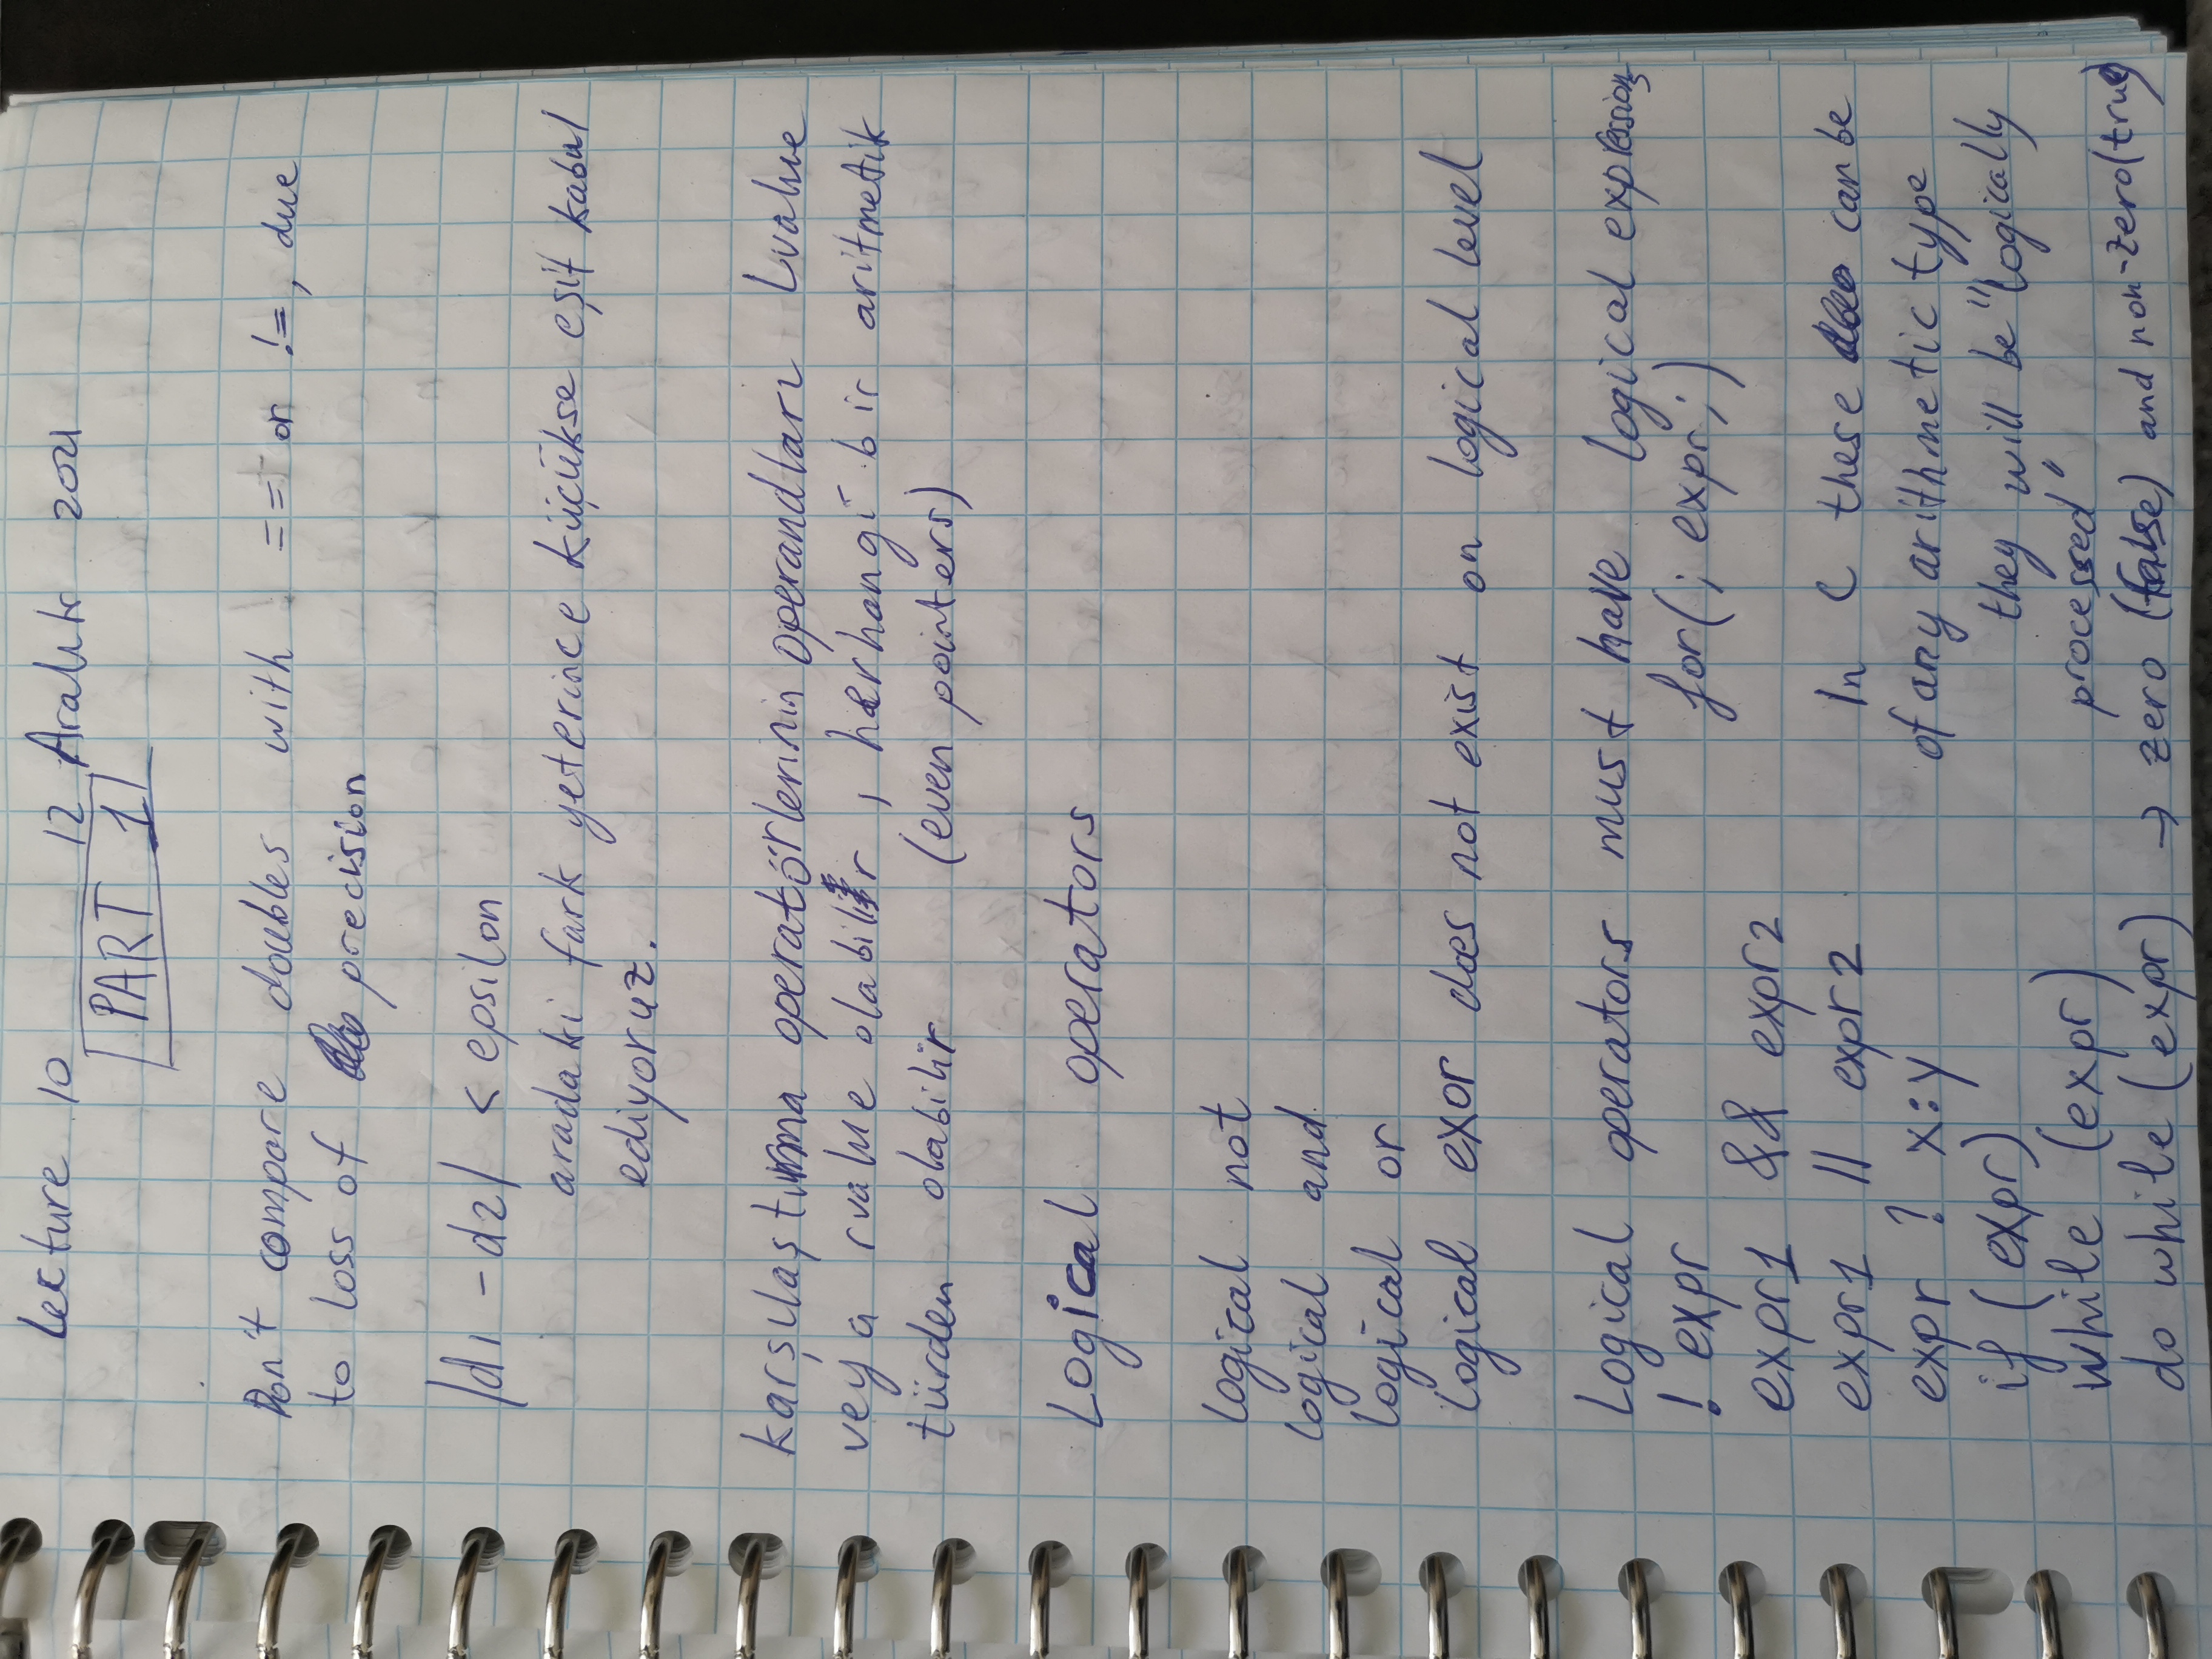 Lecture 10 12 Aralık 2021
PART 1
Don't compare doubles with == or !=, due
to loss of precision
|d1 - d2| < epsilon
aradaki fark yeterince küçükse eşit kabul
ediyoruz.
karşılaştırma operatörlerinin operandları Lvalue
veya rvalue olabilir, herhangi bir aritmetik
türden olabilir (even pointers)
Logical operators
logical not
logical and
logical or
logical exor does not exist on logical level
Logical operators must have logical expressions
! expr for(; expr;)
expr1 && expr2
expr1 || expr2 In C these can be
expr ? x:y of any arithmetic type
if (expr) they will be "logically
while (expr) processed"
do while (expr) → zero (false) and non-zero(true)